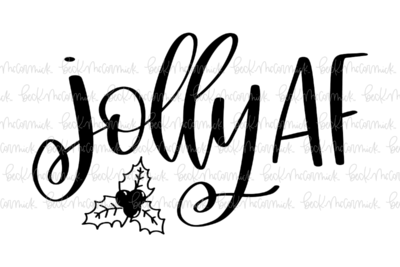 jolly AF